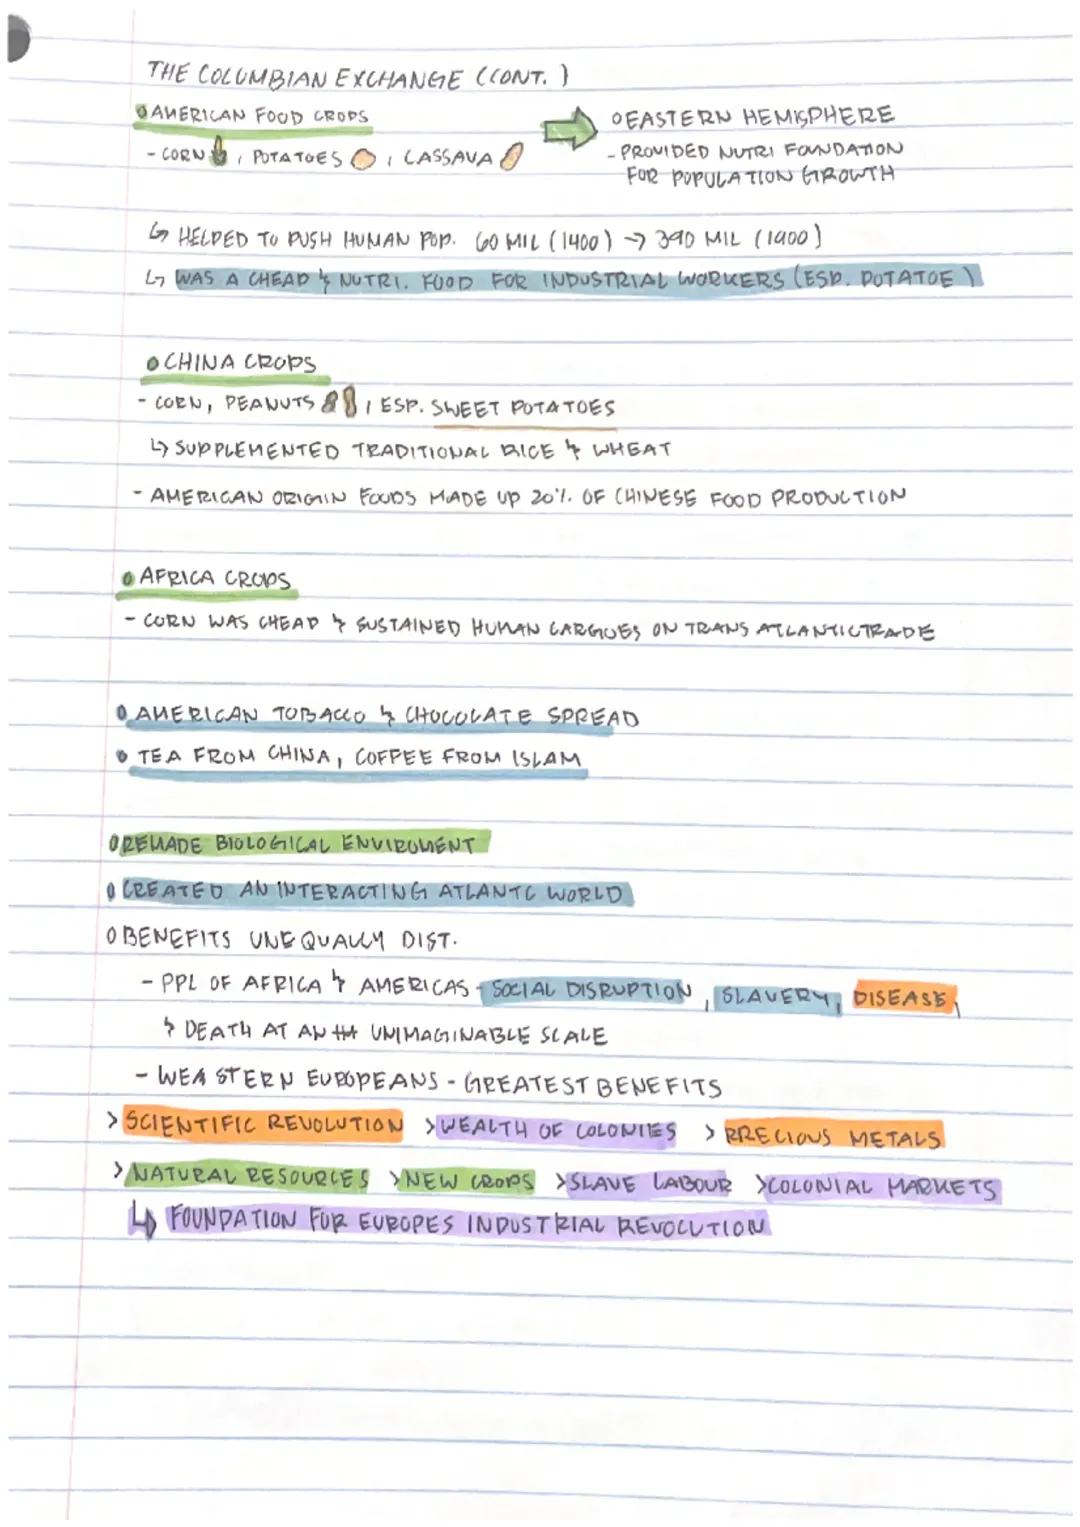 THE COLUMBIAN EXCHANGE (CONT.)
AMERICAN FOOD CROPS
- CORN, POTATOES, CASSAVA
EASTERN HEMISPHERE
- PROVIDED NUTRI FOUNDATION
FOR POPULATION GROWTH
↳ HELPED TO PUSH HUMAN POP. 60 MIL (1400) → 390 MIL (1900)
↳ WAS A CHEAP & NUTRI. FOOD FOR INDUSTRIAL WORKERS (ESP. POTATOE)
CHINA CROPS
- CORN, PEANUTS, ESP. SWEET POTATOES
↳ SUPPLEMENTED TRADITIONAL RICE & WHEAT
- AMERICAN ORIGIN FOODS MADE UP 20% OF CHINESE FOOD PRODUCTION
AFRICA CROPS
- CORN WAS CHEAP & SUSTAINED HUMAN CARGOES ON TRANS ATLANTIC TRADE
AMERICAN TOBACCO & CHOCOLATE SPREAD
TEA FROM CHINA, COFFEE FROM ISLAM
REMADE BIOLOGICAL ENVIROMENT
CREATED AN INTERACTING ATLANTC WORLD
BENEFITS UNEQUALLY DIST.
- PPL OF AFRICA & AMERICAS - SOCIAL DISRUPTION, SLAVERY, DISEASE,
& DEATH AT AN UNIMAGINABLE SCALE
- WESTERN EUROPEANS - GREATEST BENEFITS
> SCIENTIFIC REVOLUTION > WEALTH OF COLONIES > PRECIOUS METALS
> NATURAL RESOURCES > NEW CROPS > SLAVE LABOUR > COLONIAL MARKETS
↳ FOUNDATION FOR EUROPES INDUSTRIAL REVOLUTION